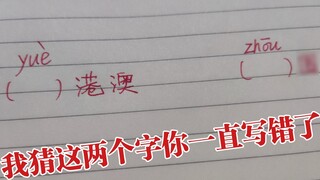 yuè zhōu
( ) 港澳 ( )
我猜这两个字你一直写错了